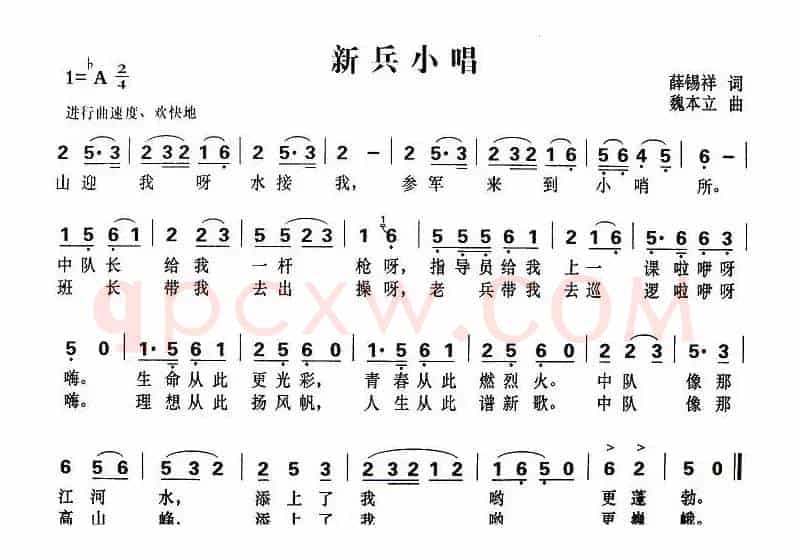 新兵小唱
1=♭A 2/4
薛锡祥 词
魏本立 曲
进行曲速度、欢快地
2 5·3 | 2 3 2 1 6 | 2 5·3 | 2 - | 2 5·3 | 2 3 2 1 6 | 5 6 4 5 | 6 - |
山迎我呀水接我,参军来到小哨所。
1 5 6 1 | 2 2 3 | 5 5 2 3 | 1 6 | 5 5 5 6 1 | 2 1 6 | 5·6 6 3 |
中队长给我一杆枪呀,指导员给我上一课啦咿呀
班长带我去出操呀,老兵带我去巡逻啦咿呀
qpcxw.com
5 0 | 1·5 6 1 | 2 5 6 0 | 1·5 6 1 | 2 5 6 0 | 2 2 3 | 5·3 |
嗨。生命从此更光彩,青春从此燃烈火。中队像那
嗨。理想从此扬风帆,人生从此谱新歌。中队像那
6 5 6 | 5 - | 2 5 3 | 2 3 2 1 2 | 1 6 5 0 | 6 2 | 5 0 ‖
江河水,添上了我哟更蓬勃。
高山峰,添上了我哟更巍峨。